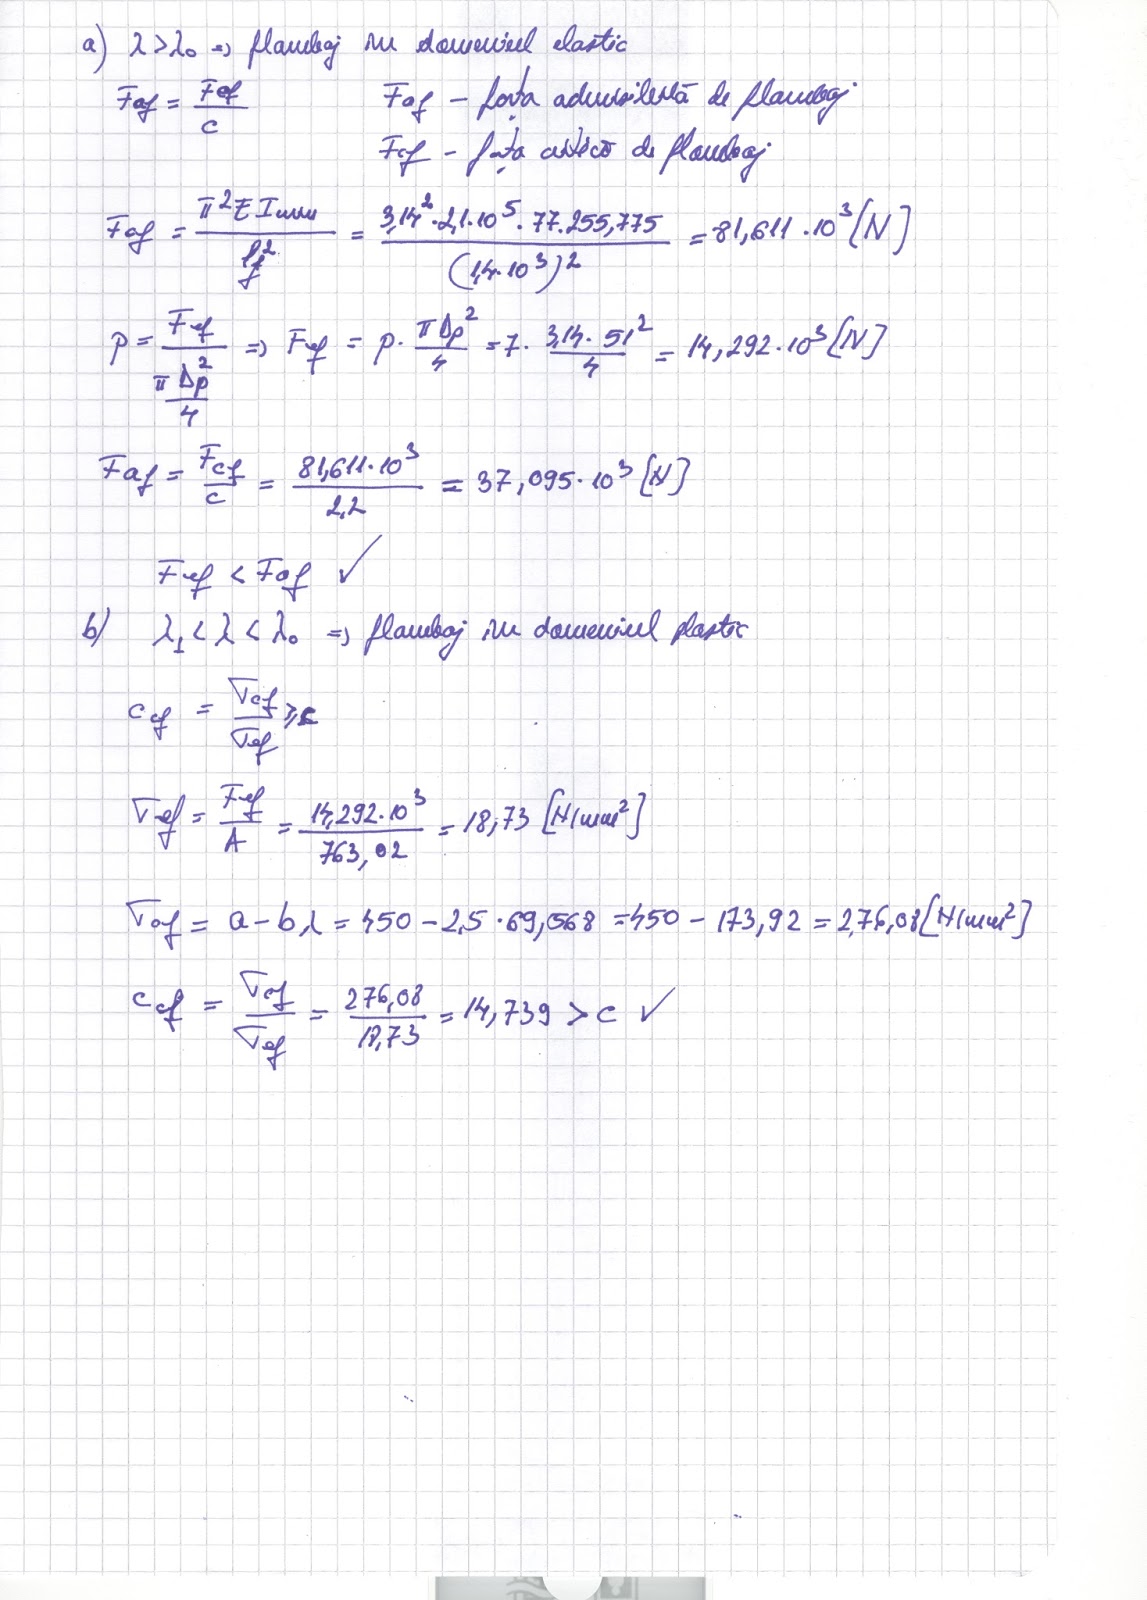 a) λ > λ₀ ⇒ flambaj în domeniul elastic
Faf = Fcf / c    Faf – forța admisibilă de flambaj
Fcf – forța critică de flambaj
Faf = π² E Imin / lf² = 3,14² · 2,1 · 10⁵ · 77.255,775 / (1,4 · 10³)² = 81,611 · 10³ [N]
p = Fef / (π Dp² / 4) ⇒ Fef = p · π Dp² / 4 = 7 · 3,14 · 51² / 4 = 14,292 · 10³ [N]
Faf = Fcf / c = 81,611 · 10³ / 2,2 = 37,095 · 10³ [N]
Fef < Faf ✓
b) λ₁ < λ < λ₀ ⇒ flambaj în domeniul plastic
ccf = σcf / σef ≥ c
σef = Fef / A = 14,292 · 10³ / 763,02 = 18,73 [N/mm²]
σcf = a – b λ = 450 – 2,5 · 69,568 = 450 – 173,92 = 276,08 [N/mm²]
ccf = σcf / σef = 276,08 / 18,73 = 14,739 > c ✓